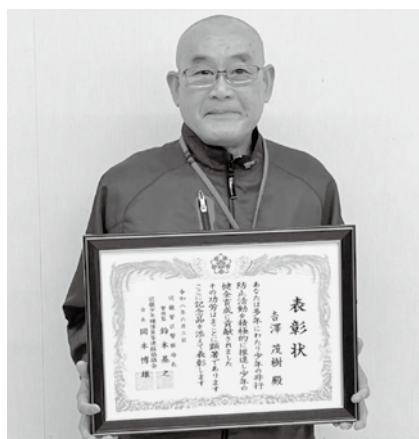 表彰状
吉澤 茂樹 殿
あなたは多年にわたり少年の非行
防止活動を積極的に推進し少年の
健全育成に貢献されました
その功労はまことに顕著であります
ここに記念品を添えて表彰します
令和六年六月三日
近畿管区警察局長
警視監 鈴木基之
会長 岡本博雄